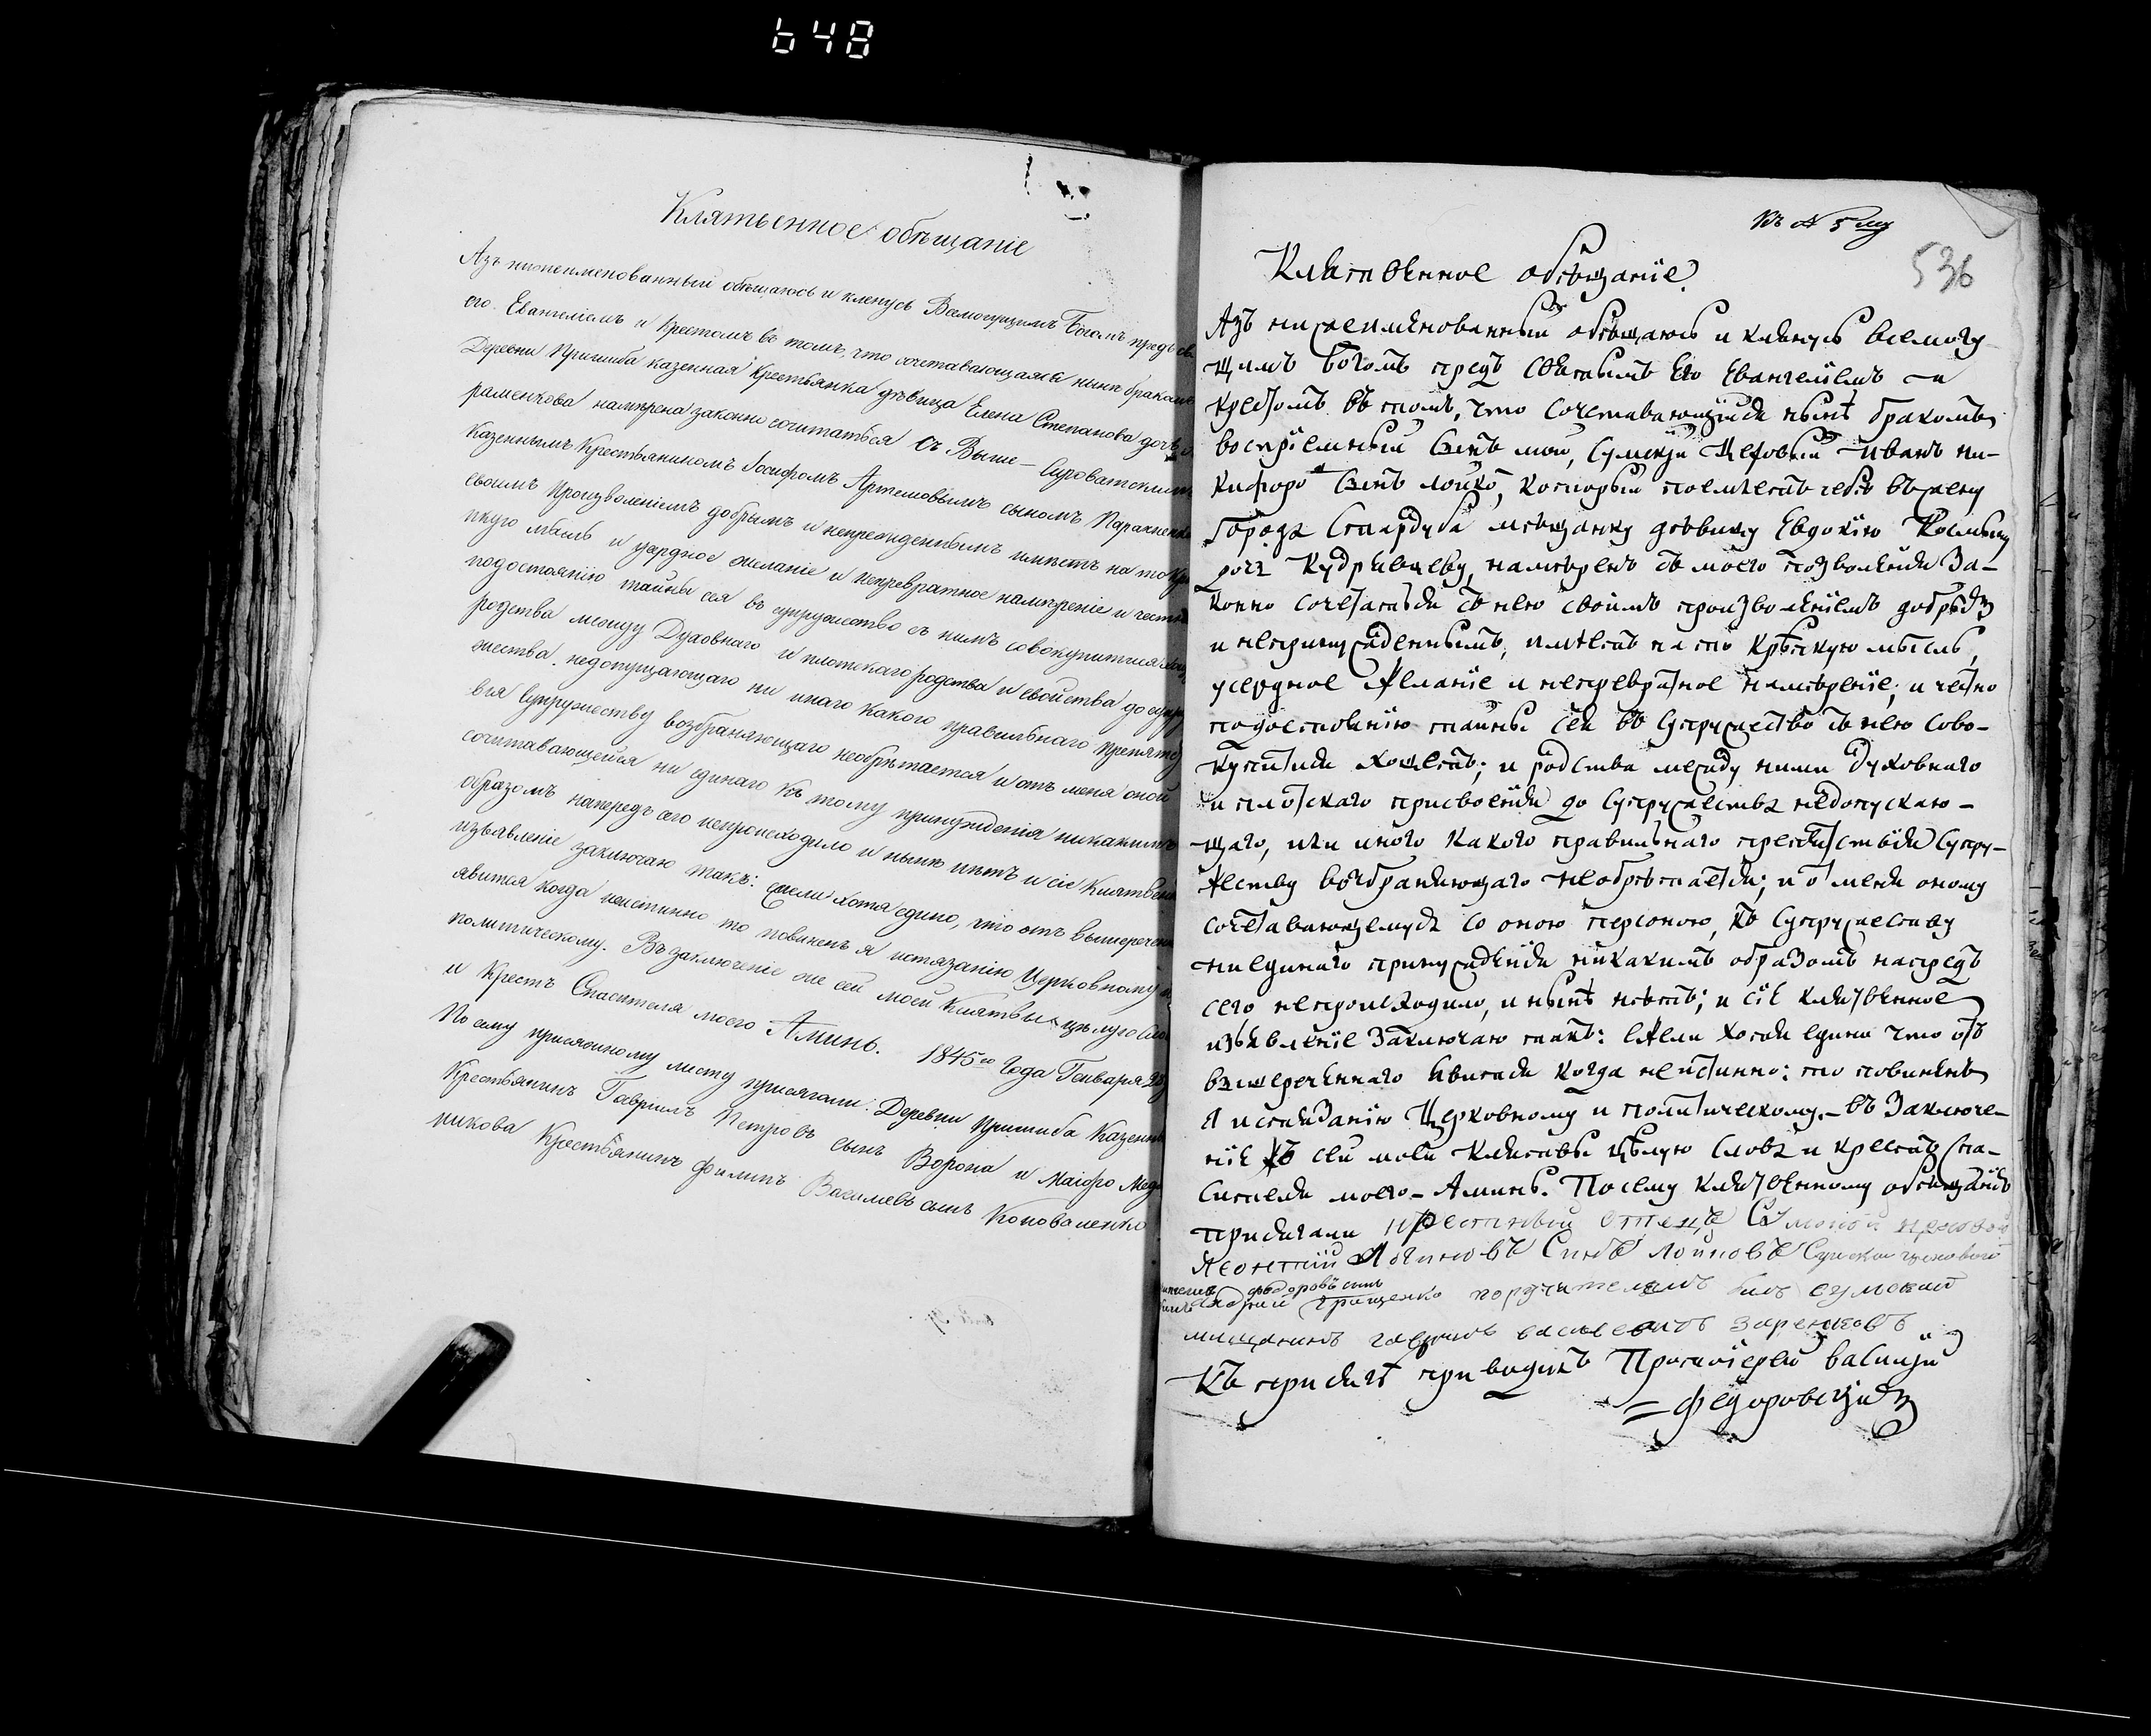 648
Клятвенное обѣщаніе
Азъ нижеименованный обѣщаюсь и кленусь Всемогущимъ Богомъ предъ св.
его Евангеліемъ и Крестомъ въ томъ, что сочетавающаяся нынѣ бракомъ
Деревни Пришиба казенная Крестьянка дѣвица Елена Степанова дочь
раменкова намѣрена законно сочитаться съ Выше-Сыроватскимъ
Казеннымъ Крестьяниномъ Іосифомъ Артемовымъ сыномъ
своимъ произволеніемъ добрымъ и непренужденнымъ имѣетъ на то
пкую мысль и усердное желаніе и непревратное намѣреніе и честно
подостоянію тайны сея въ супружество съ нимъ совокупитися
родства между Духовнаго и плотскаго родства и свойства до супр
жества недопущающаго ни инаго какого правильнаго препятс
вія Супружеству возбраняющаго необрѣтается и отъ меня оной
сочитавающейся ни единаго къ тому принужденія никакимъ
образомъ напередъ сего непроисходило и нынѣ нѣтъ и сіе Клятвен
изъявленіе заключаю такъ: ежели хотя едино, что отъ вышеречен
явится когда неистинно то повиненъ я истязанію Церковному и
политическому. Въ заключеніе же сей моей Клятвы цѣлую Сло
и Крестъ Спасителя моего Аминь. 1845го Года Генваря
По сему присяжному листу присягали: Деревни Пришиба Казенны
Крестьянинъ Гавріилъ Петровъ сынъ Ворона и Маіора Мед
никова Крестьянинъ Филипъ Василіевъ сынъ Коноваленко
къ № 5му
536
Клятвенное обѣщаніе
Азъ нижеименованный обѣщаюсь и клянусь всемогу
щимъ Богомъ предъ святымъ Его Евангеліемъ и
крестомъ въ томъ, что сочетавающійся нынѣ бракомъ
воспріемный сынъ мой, Сумскій Цеховый Иванъ Ни-
кифоро сынъ Лойко, который поемлетъ себѣ въ жену
Города Стародуба мѣщанку дѣвицу Евдокію Козьмину
дочь Кудрявцеву, намѣренъ съ моего позволенія За-
конно сочетаться съ нею своимъ произволеніемъ добрымъ
и непринужденнымъ, имѣетъ на то крѣпкую мысль,
усердное желаніе и непревратное намѣреніе; и честно
подостоянію тайны сея въ Супружество съ нею сово-
купитися хощетъ; и родства между ними духовнаго
и плотскаго присвоенія до Супружества недопускаю-
щаго, или иного какого правильнаго препятствія Супру-
жеству возбраняющаго необрѣтается; и от меня оному
сочетавающемуся со оною персоною, къ Супружеству
ниединаго принужденія никакимъ образомъ напредъ
сего непроисходило, и нынѣ нѣтъ; и сіе клятвенное
изъявленіе Заключаю такъ: ежели хотя едино что отъ
вышереченнаго явится когда неистинно: то повиненъ
я истязанію Церковному и политическому.- въ Заключе-
ніе сей моей клятвы цѣлую Слова и крестъ Спа-
сителя моего - Аминь. По сему клятвенному обѣщанію
присягали крестный отецъ Сумской цеховой
Леонтий Сынъ Лойковъ Сумской цеховой
Федоровъ сынъ
Андрей Грищенко поручителемъ билъ сумский
мищанинъ гаврило василевичъ
Къ присягѣ приводилъ Протоіерей Василій
Федоровскій